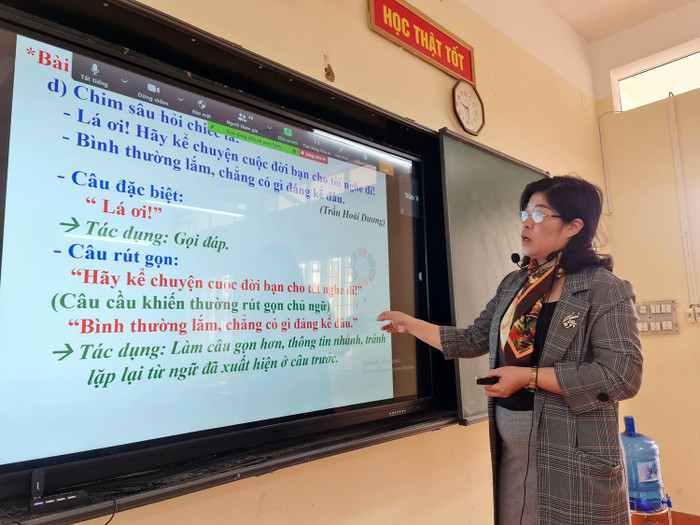 HỌC THẬT TỐT
*Bài
Tắt tiếng
Dừng video
Bảo mật
Người tham gia
d) Chim sâu hỏi chiếc lá:
- Lá ơi! Hãy kể chuyện cuộc đời bạn cho tôi nghe đi!
- Bình thường lắm, chẳng có gì đáng kể đâu.
(Trần Hoài Dương)
- Câu đặc biệt:
“ Lá ơi!”
→ Tác dụng: Gọi đáp.
- Câu rút gọn:
“Hãy kể chuyện cuộc đời bạn cho tôi nghe đi!”
(Câu cầu khiến thường rút gọn chủ ngữ)
“Bình thường lắm, chẳng có gì đáng kể đâu.”
→ Tác dụng: Làm câu gọn hơn, thông tin nhánh, tránh
lặp lại từ ngữ đã xuất hiện ở câu trước.